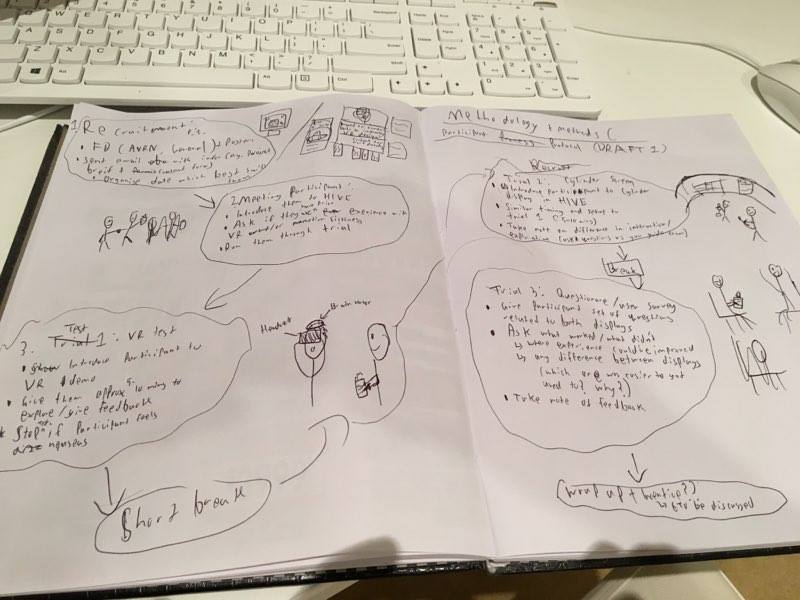 1 Recruitment:
• FB (AVRN, General) + Posters
• Sent email with info
brief + consent form)
• Organise date which best suits
them
2. Meeting Participant:
• Introduce them to HIVE
• Ask if they have prior experience with
VR and/or motion sickness
• Run them through trial
Test
3. Trial 1: VR test
• Introduce Participant to
VR demo
• Give them approx 5-10 mins to
explore/give feedback
* Stop if Participant feels
nauseas
Short break
Headset
Methodology + methods (
Participant Protocol (DRAFT 1)
Trial 2: Cylinder Screen
• Introduce Participant to Cylinder
display in HIVE
• Similar timing and setup to
trial 1
• Take note on difference in interaction/
exploration (use questions as you
Break
Trial 3: Questionare/user survey
• Give Participant set of questions
related to both displays
• Ask what worked/what didn't
↳ where experience could be improved
↳ any difference between displays
(which one was easier to get
used to? why?)
• Take note of feedback
(wrap up + incentive?)
↳ to be discussed